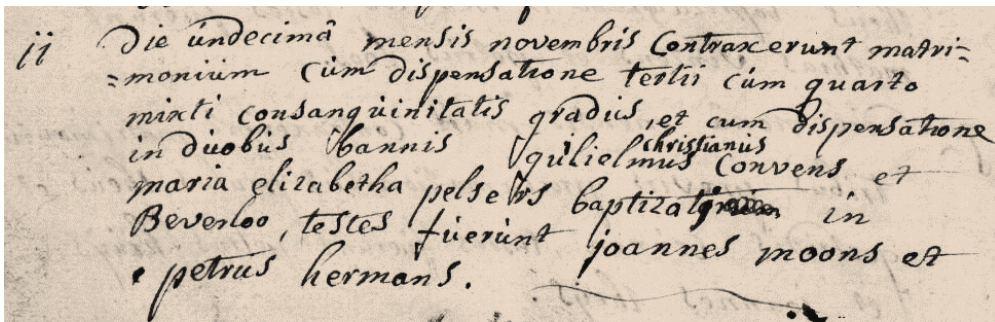 ii Die undecimâ mensis novembris Contraxerunt matri=
=monium cum dispensatione tertii cum quarto
mixti consanguinitatis gradus, et cum dispensatione
in duobus bannis gulielmus christianus Convens et
maria elizabetha pelsers in
Beverloo, testes fuerunt joannes moons et
petrus hermans.